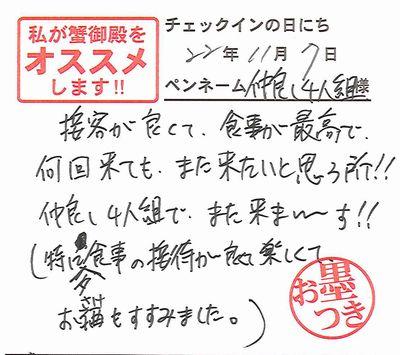 私が蟹御殿を
オススメ
します!!
チェックインの日にち
22年 11月 7日
ペンネーム 仲良し4人組様
接客が良くて、食事が最高で、
何回来ても、また来たいと思う所!!
仲良し4人組で、また来ま〜す!!
(特に夕食事の接待が良く楽しくて、
お酒もすすみました。)
お墨
つき